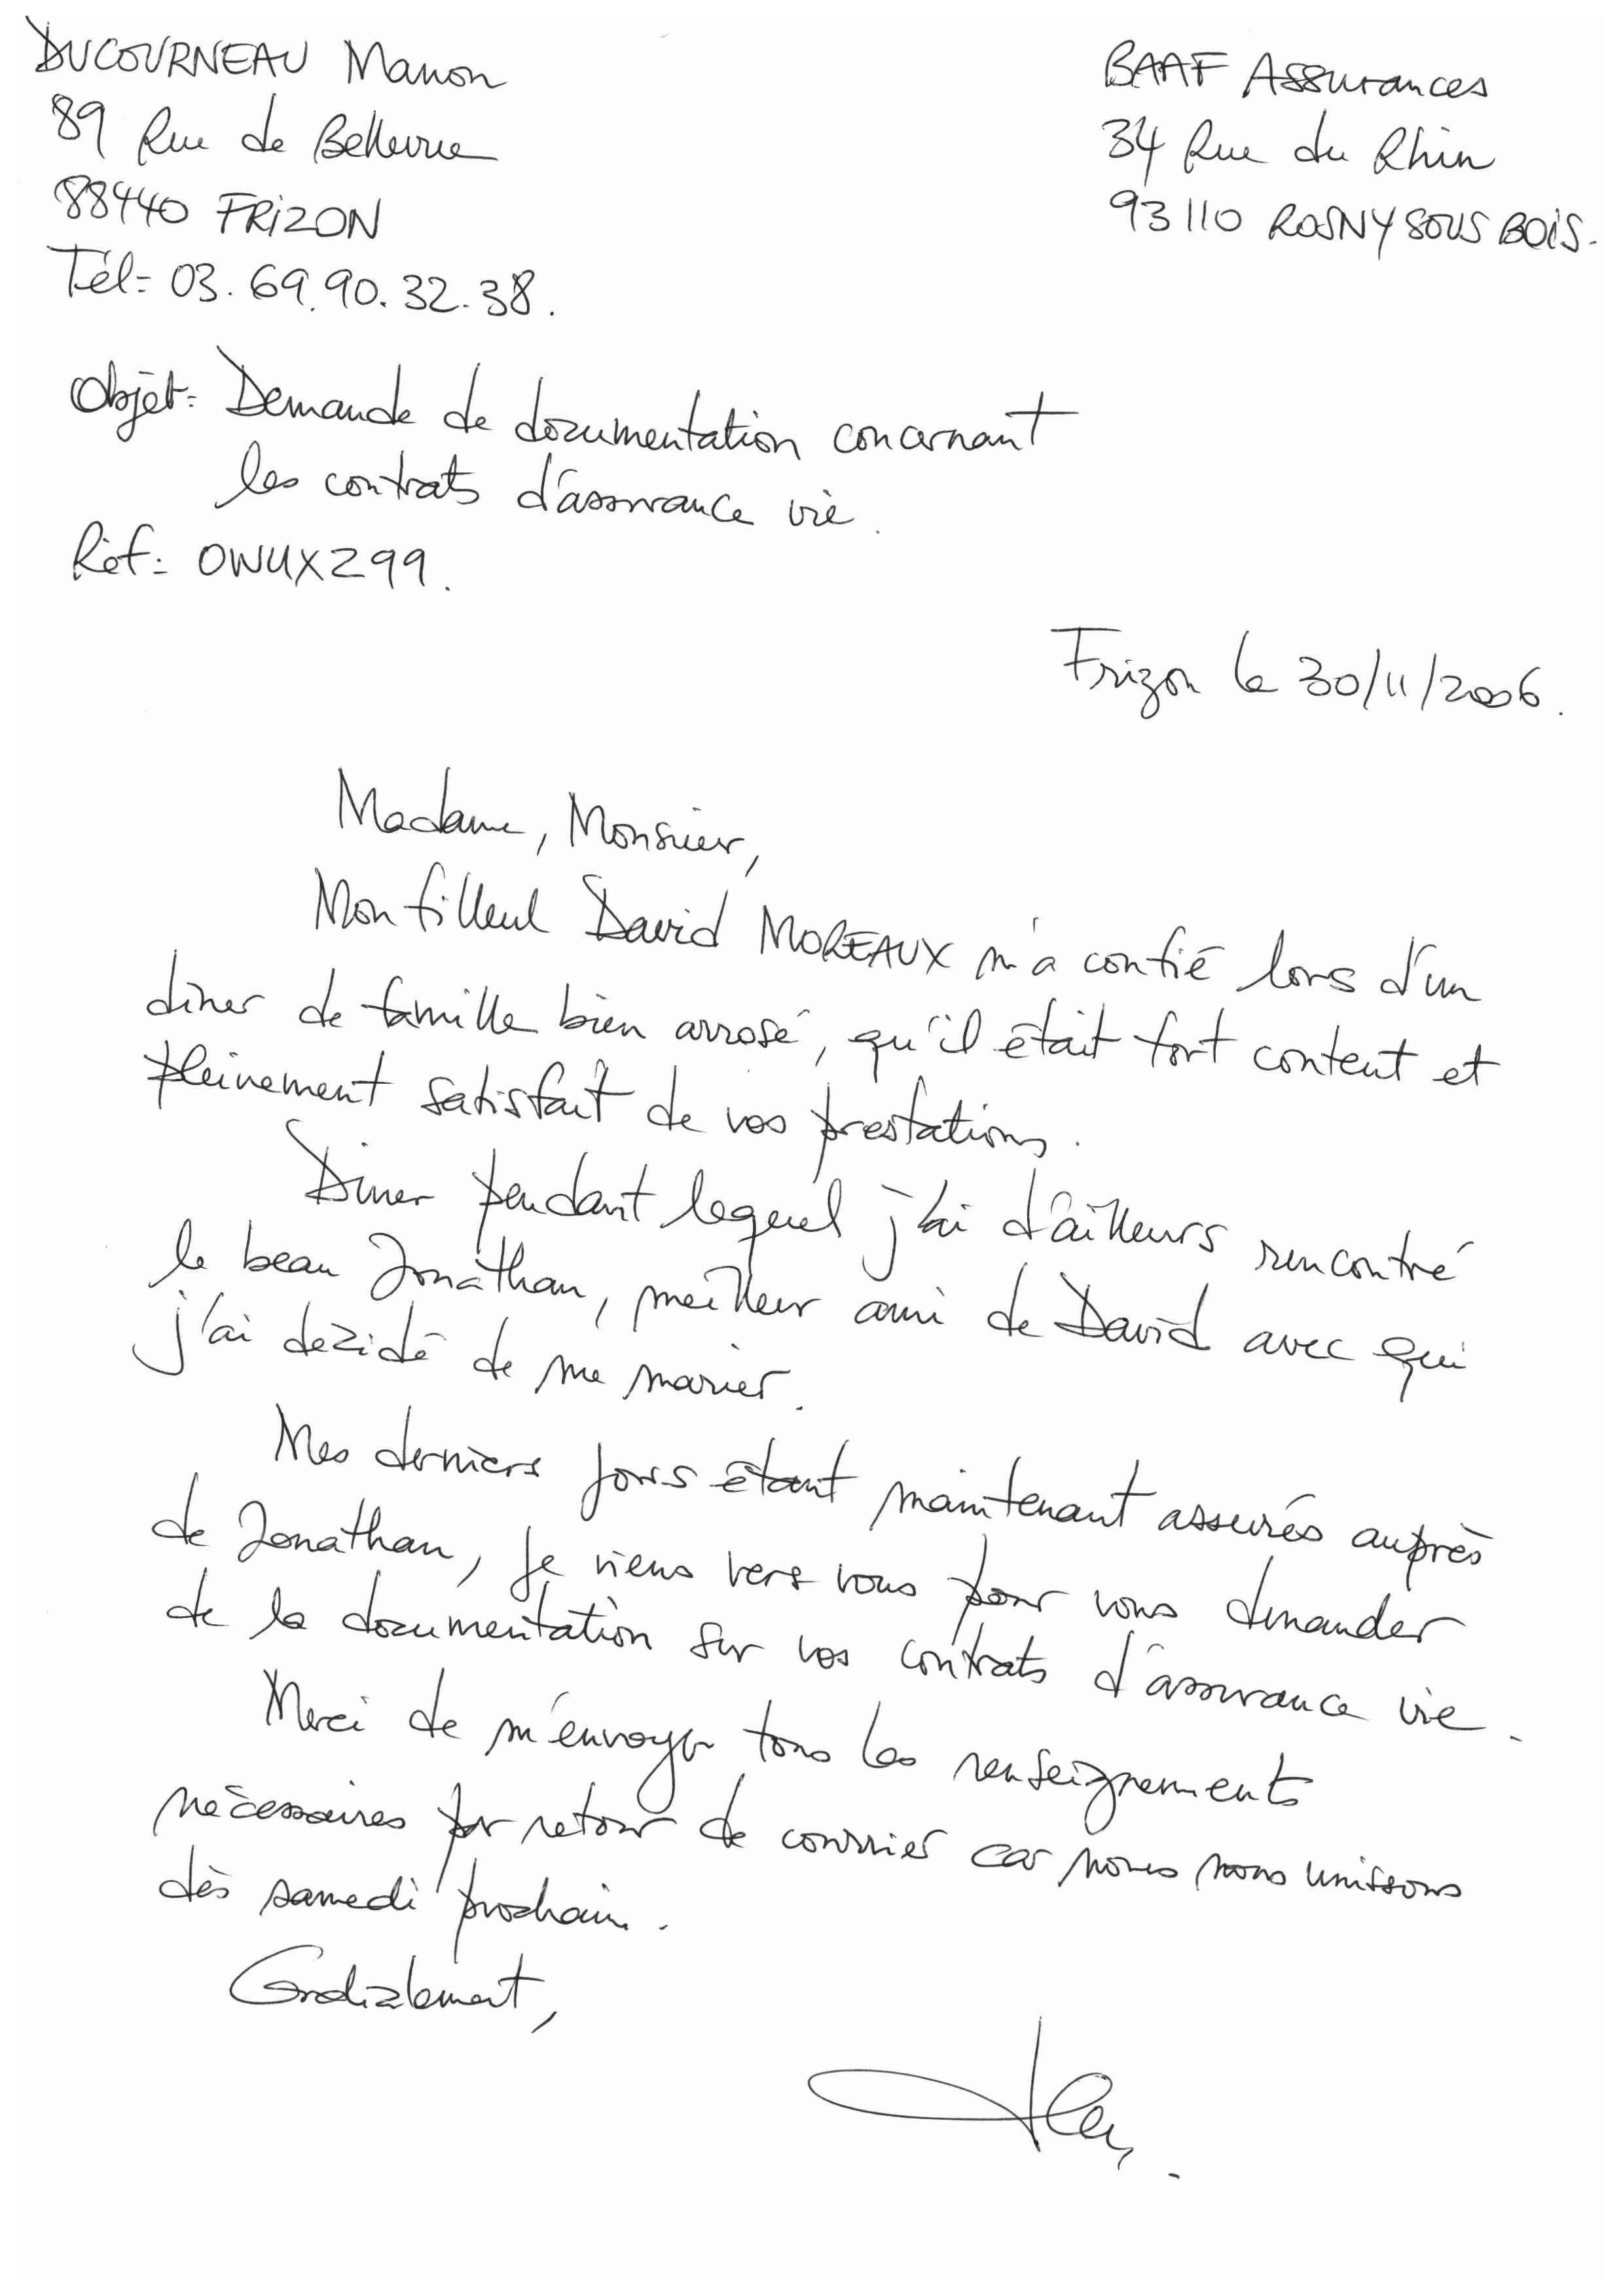 DUCOURNEAU Manon
89 Rue de Bellevue
88440 FRIZON
Tél= 03.69.90.32.38.
BAAF Assurances
34 Rue du Rhin
93110 ROSNY SOUS BOIS.
Objet= Demande de documentation concernant
les contrats d'assurance vie.
Réf= OWUXZ99.
Frizon le 30/11/2006.
Madame, Monsieur,
Mon filleul David MOREAUX m'a confié lors d'un
diner de famille bien arrosé, qu'il était fort content et
pleinement satisfait de vos prestations.
Diner pendant lequel j'ai d'ailleurs rencontré
le beau Jonathan, meilleur ami de David avec qui
j'ai dezidé de me marier.
Mes derniers jours étant maintenant assurés auprès
de Jonathan, je viens vers vous pour vous demander
de la documentation sur vos contrats d'assurance vie.
Merci de m'envoyer tous les renseignements
nécessaires par retour de courrier car nous nous unissons
dès samedi prochain.
Cordialement,